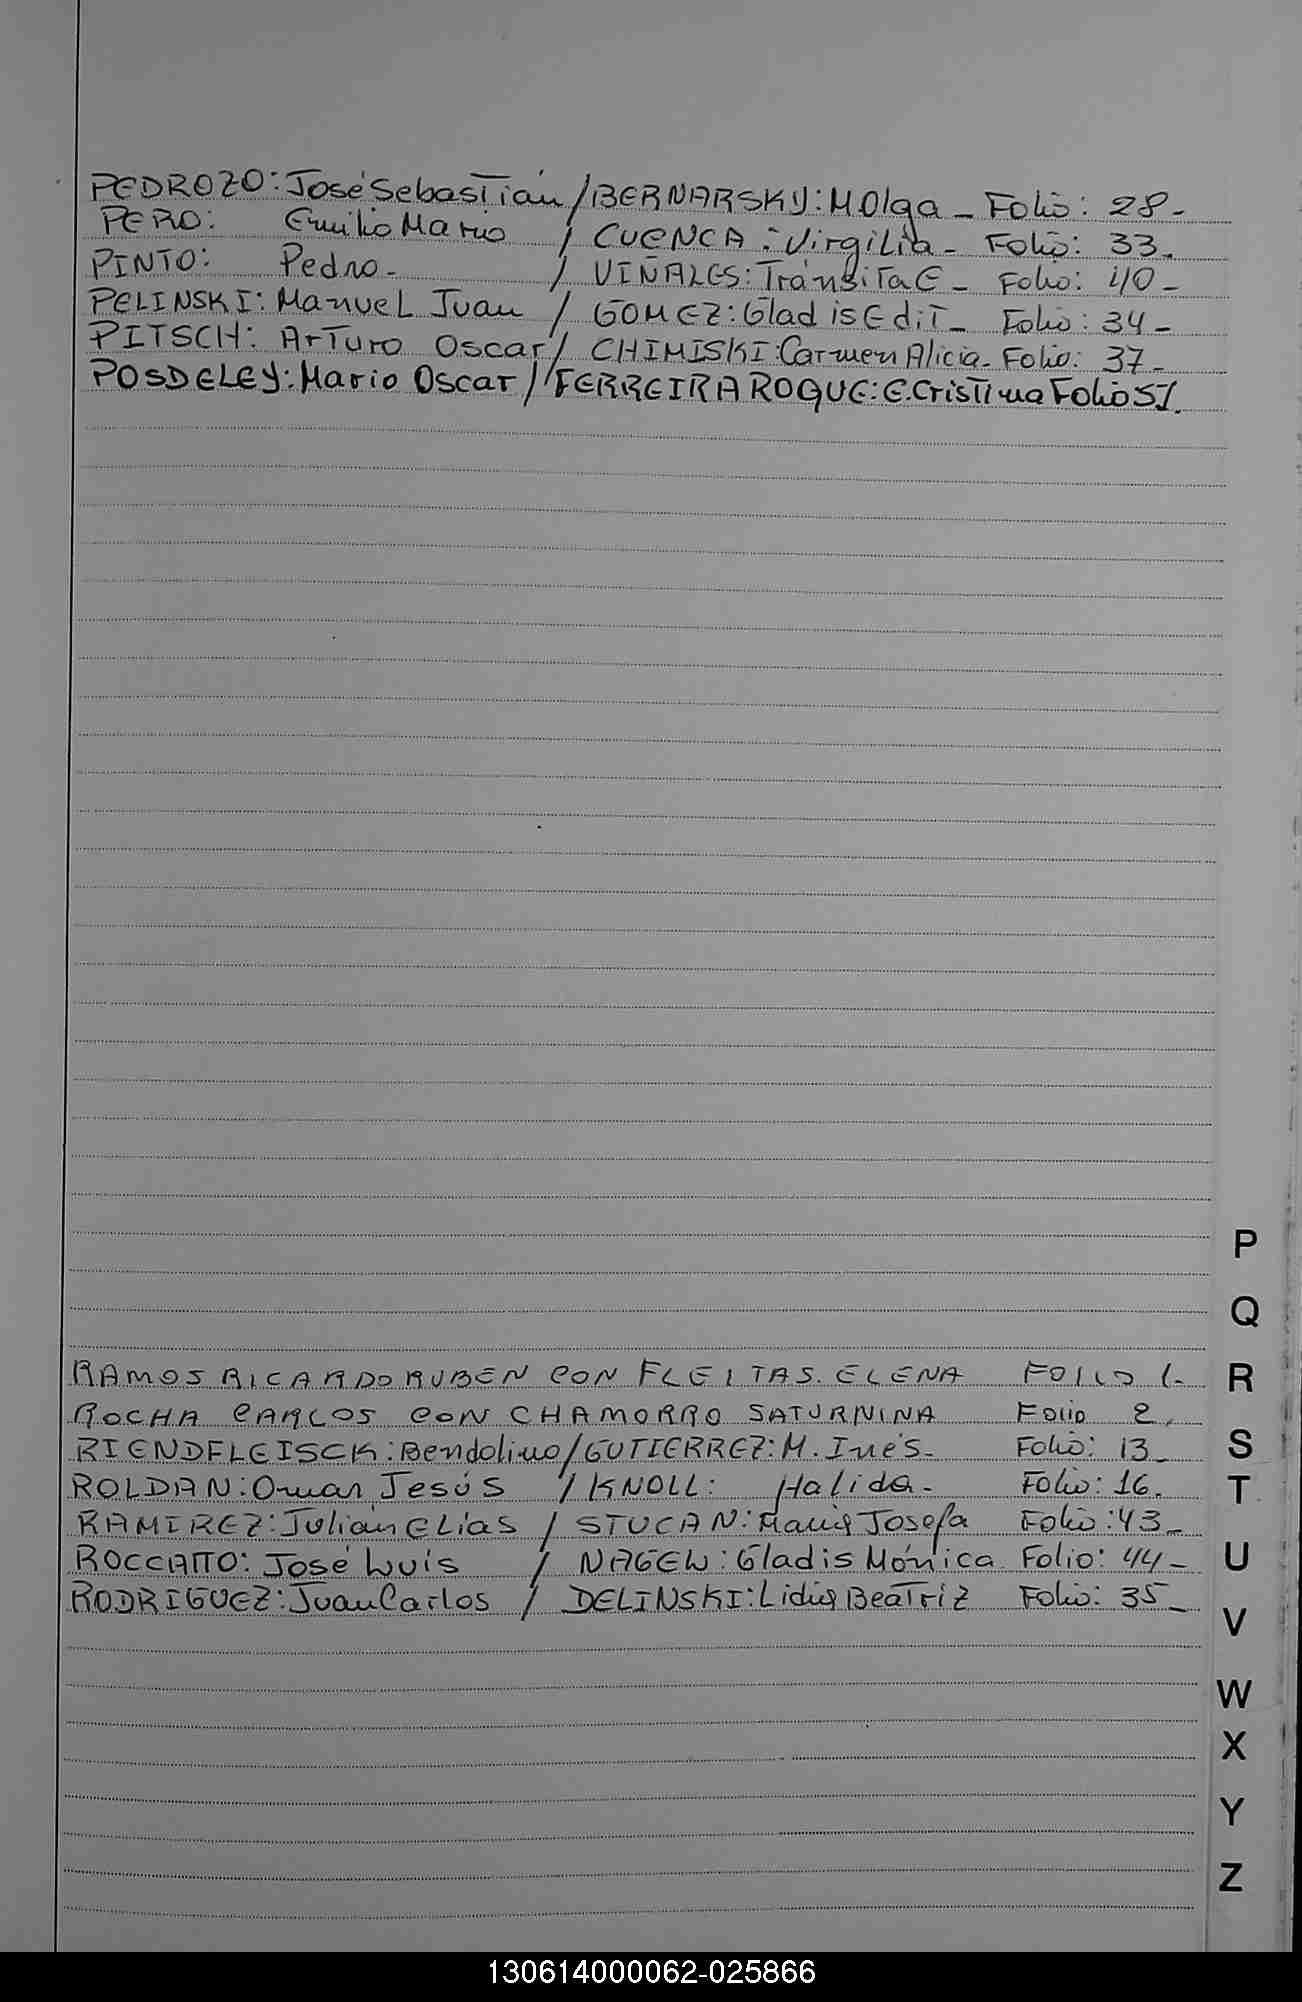 PEDROZO: José Sebastián / BERNARSKY: M Olga - Folio: 28-
PERO: Emilio Mario / CUENCA: Virgilia - Folio: 33.
PINTO: Pedro.- / VIÑALES: Tránsita E - Folio: 40-
PELINSKI: Manuel Juan / GOMEZ: Gladis Edit - Folio: 34-
PITSCH: Arturo Oscar / CHIMISKI: Carmen Alicia. Folio: 37-
POSDELEY: Mario Oscar / FERREIRA ROQUE: E. Cristina Folio 51.
P
Q
RAMOS RICARDO RUBEN CON FLEITAS. ELENA FOLIO 1.-
ROCHA CARLOS CON CHAMORRO SATURNINA Folio 2.
RIENDFLEISCK: Bendolino / GUTIERREZ: M. Inés.- Folio: 13-
ROLDAN: Omar Jesús / KNOLL: Halida.- Folio: 16.
RAMIREZ: Julián Elias / STUCAN: María Josefa Folio: 43-
ROCCATTO: José Luis / NAGEW: Gladis Mónica Folio: 44-
RODRIGUEZ: Juan Carlos / DELINSKI: Lidia Beatriz Folio: 35-
R
S
T
U
V
W
X
Y
Z
130614000062-025866